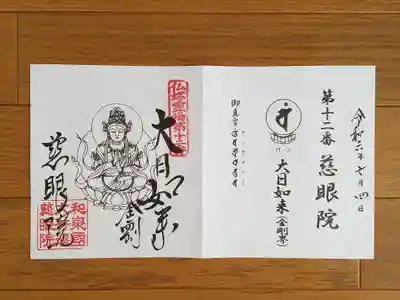 令和二年七月四日
第十二番 慈眼院
バン
大日如来(金剛界)
御真言
大日如来
金剛
慈眼院
和泉國
慈眼院